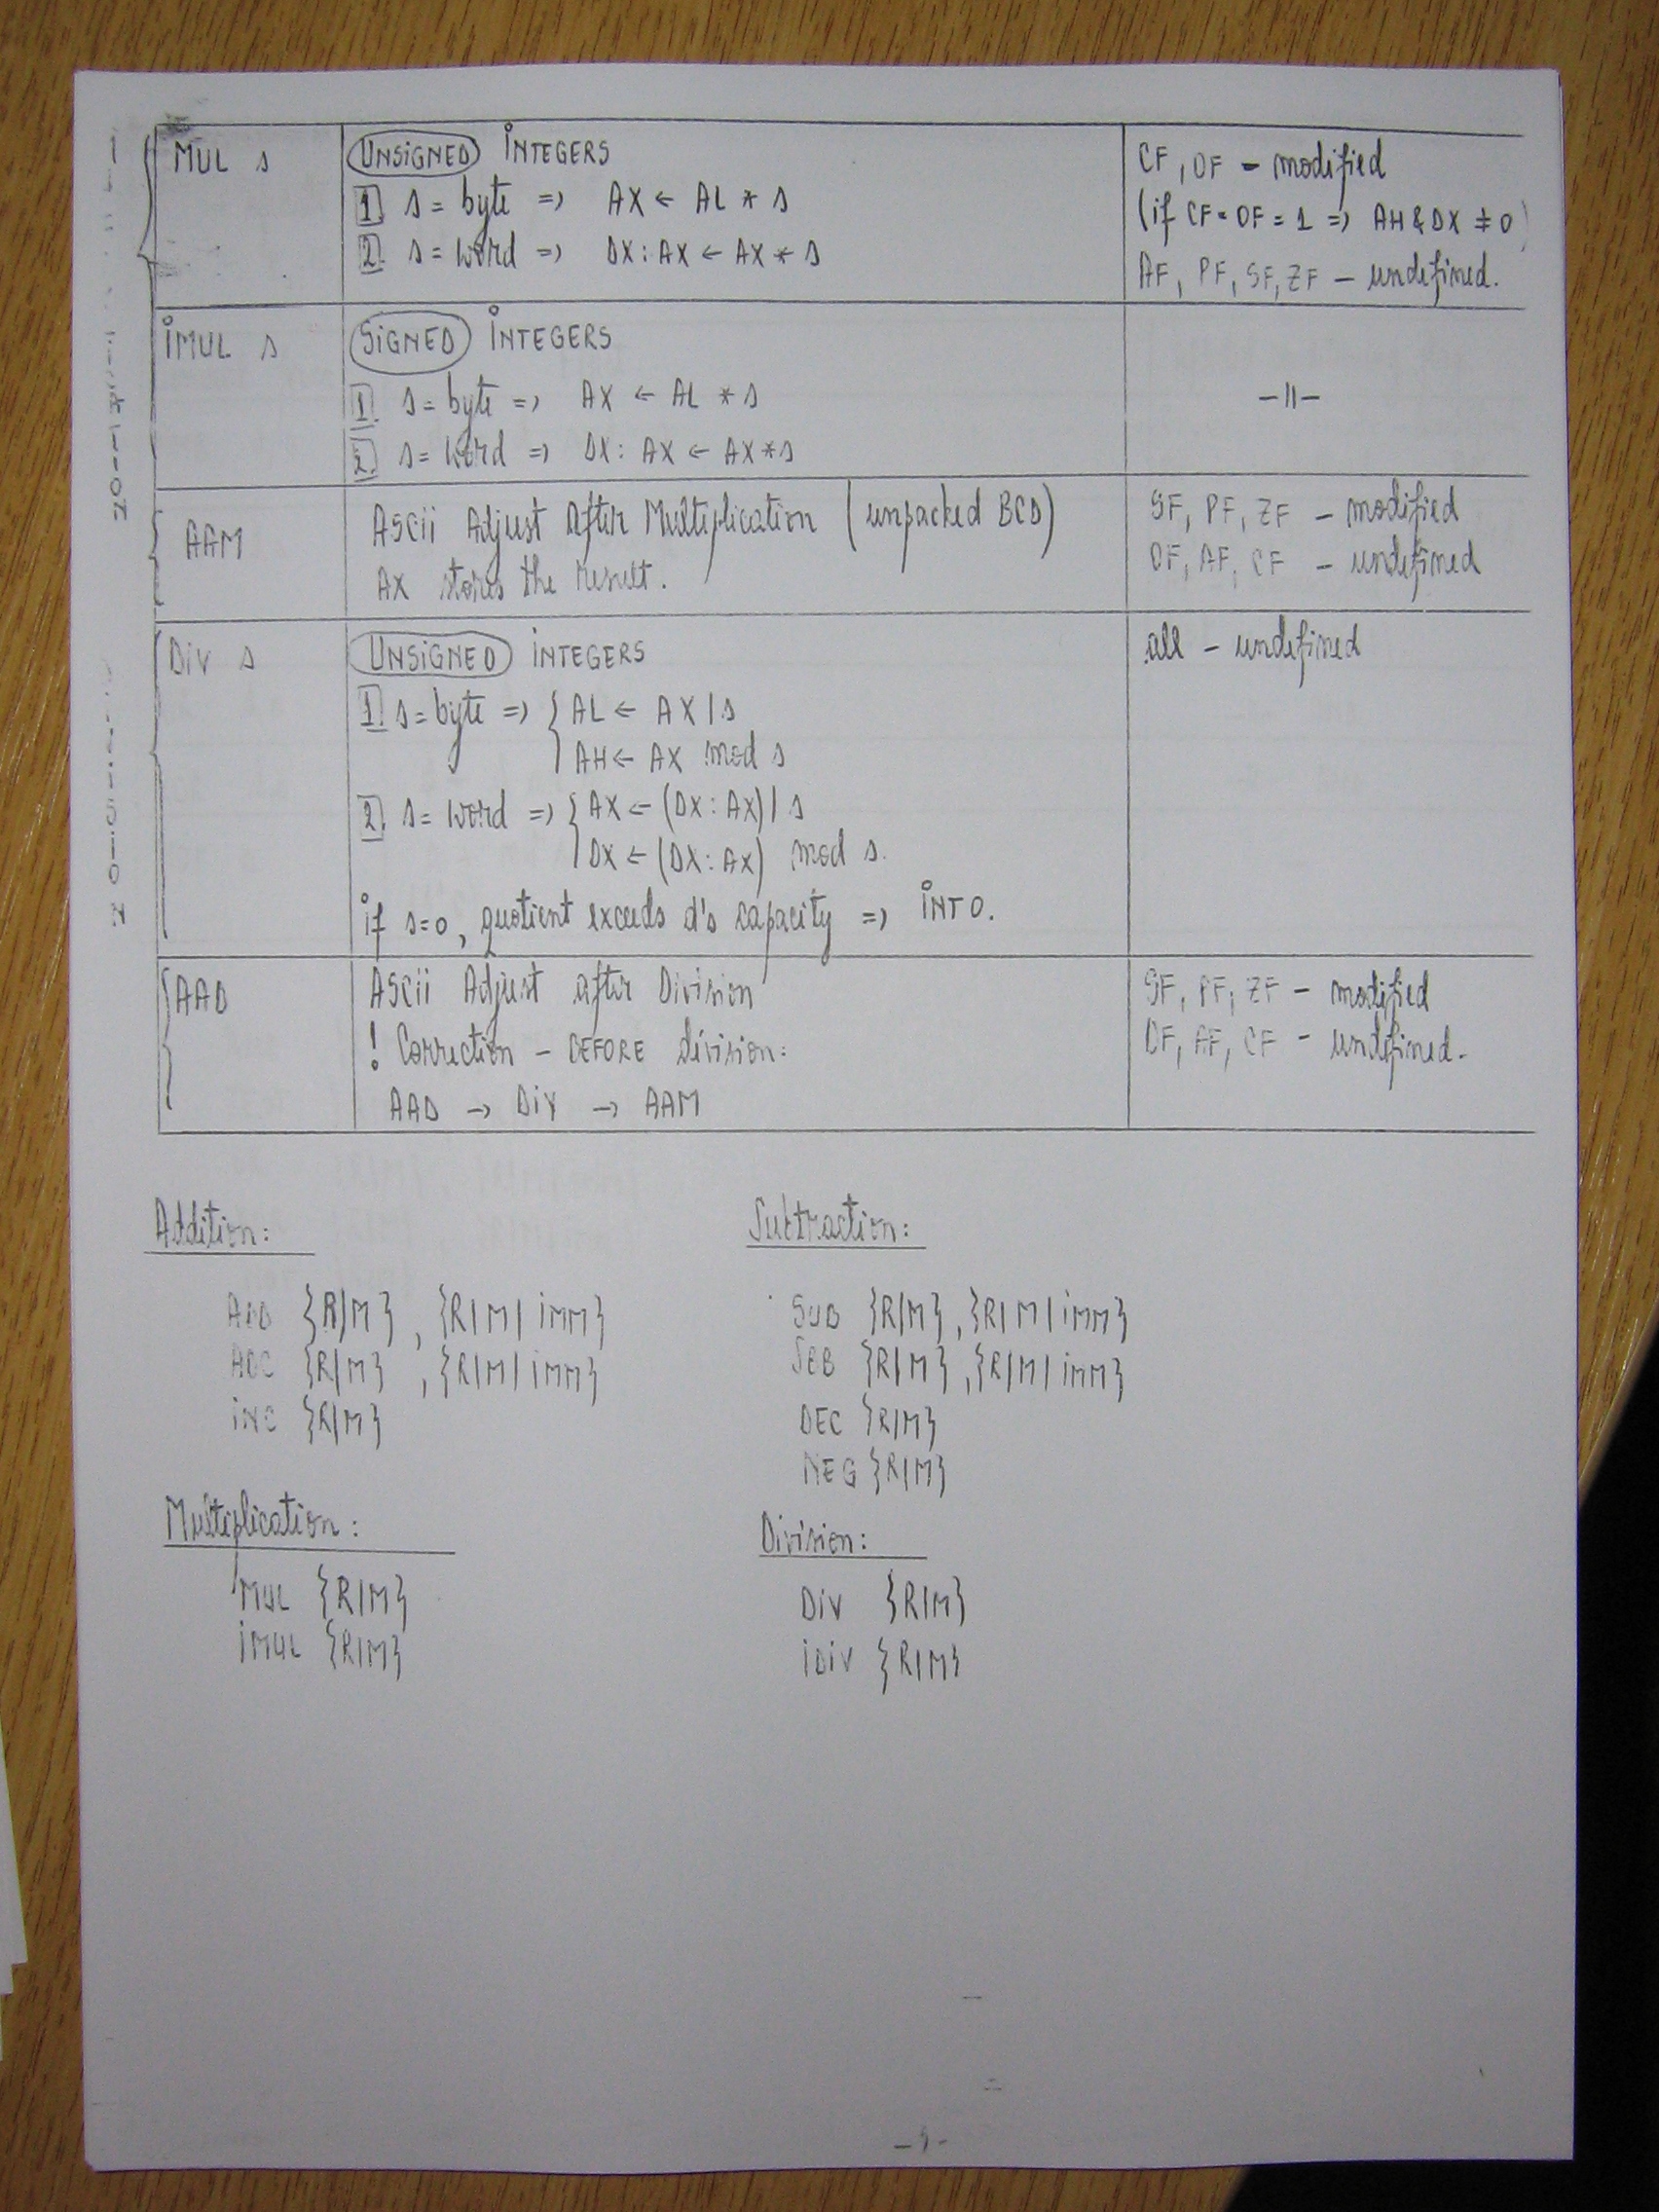 MUL s
UNSIGNED INTEGERS
1. s = byte => AX ← AL * s
2. s = word => DX : AX ← AX * s
CF, OF - modified
(if CF = OF = 1 => AH & DX ≠ 0)
AF, PF, SF, ZF - undefined.
IMUL s
SIGNED INTEGERS
1. s = byte => AX ← AL * s
2. s = word => DX : AX ← AX * s
-11-
AAM
ASCII Adjust After Multiplication (unpacked BCD)
AX stores the result.
SF, PF, ZF - modified
OF, AF, CF - undefined
DIV s
UNSIGNED INTEGERS
1. s = byte => { AL ← AX / s
AH ← AX mod s
2. s = word => { AX ← (DX : AX) / s
DX ← (DX : AX) mod s.
if s=0, quotient exceeds d's capacity => INT 0.
all - undefined
AAD
ASCII Adjust after Division
! Correction - BEFORE division:
AAD → DIV → AAM
SF, PF, ZF - modified
OF, AF, CF - undefined.
Addition:
ADD {R|M}, {R|M|imm}
ADC {R|M}, {R|M|imm}
INC {R|M}
Subtraction:
SUB {R|M}, {R|M|imm}
SBB {R|M}, {R|M|imm}
DEC {R|M}
NEG {R|M}
Multiplication:
MUL {R|M}
IMUL {R|M}
Division:
DIV {R|M}
IDIV {R|M}